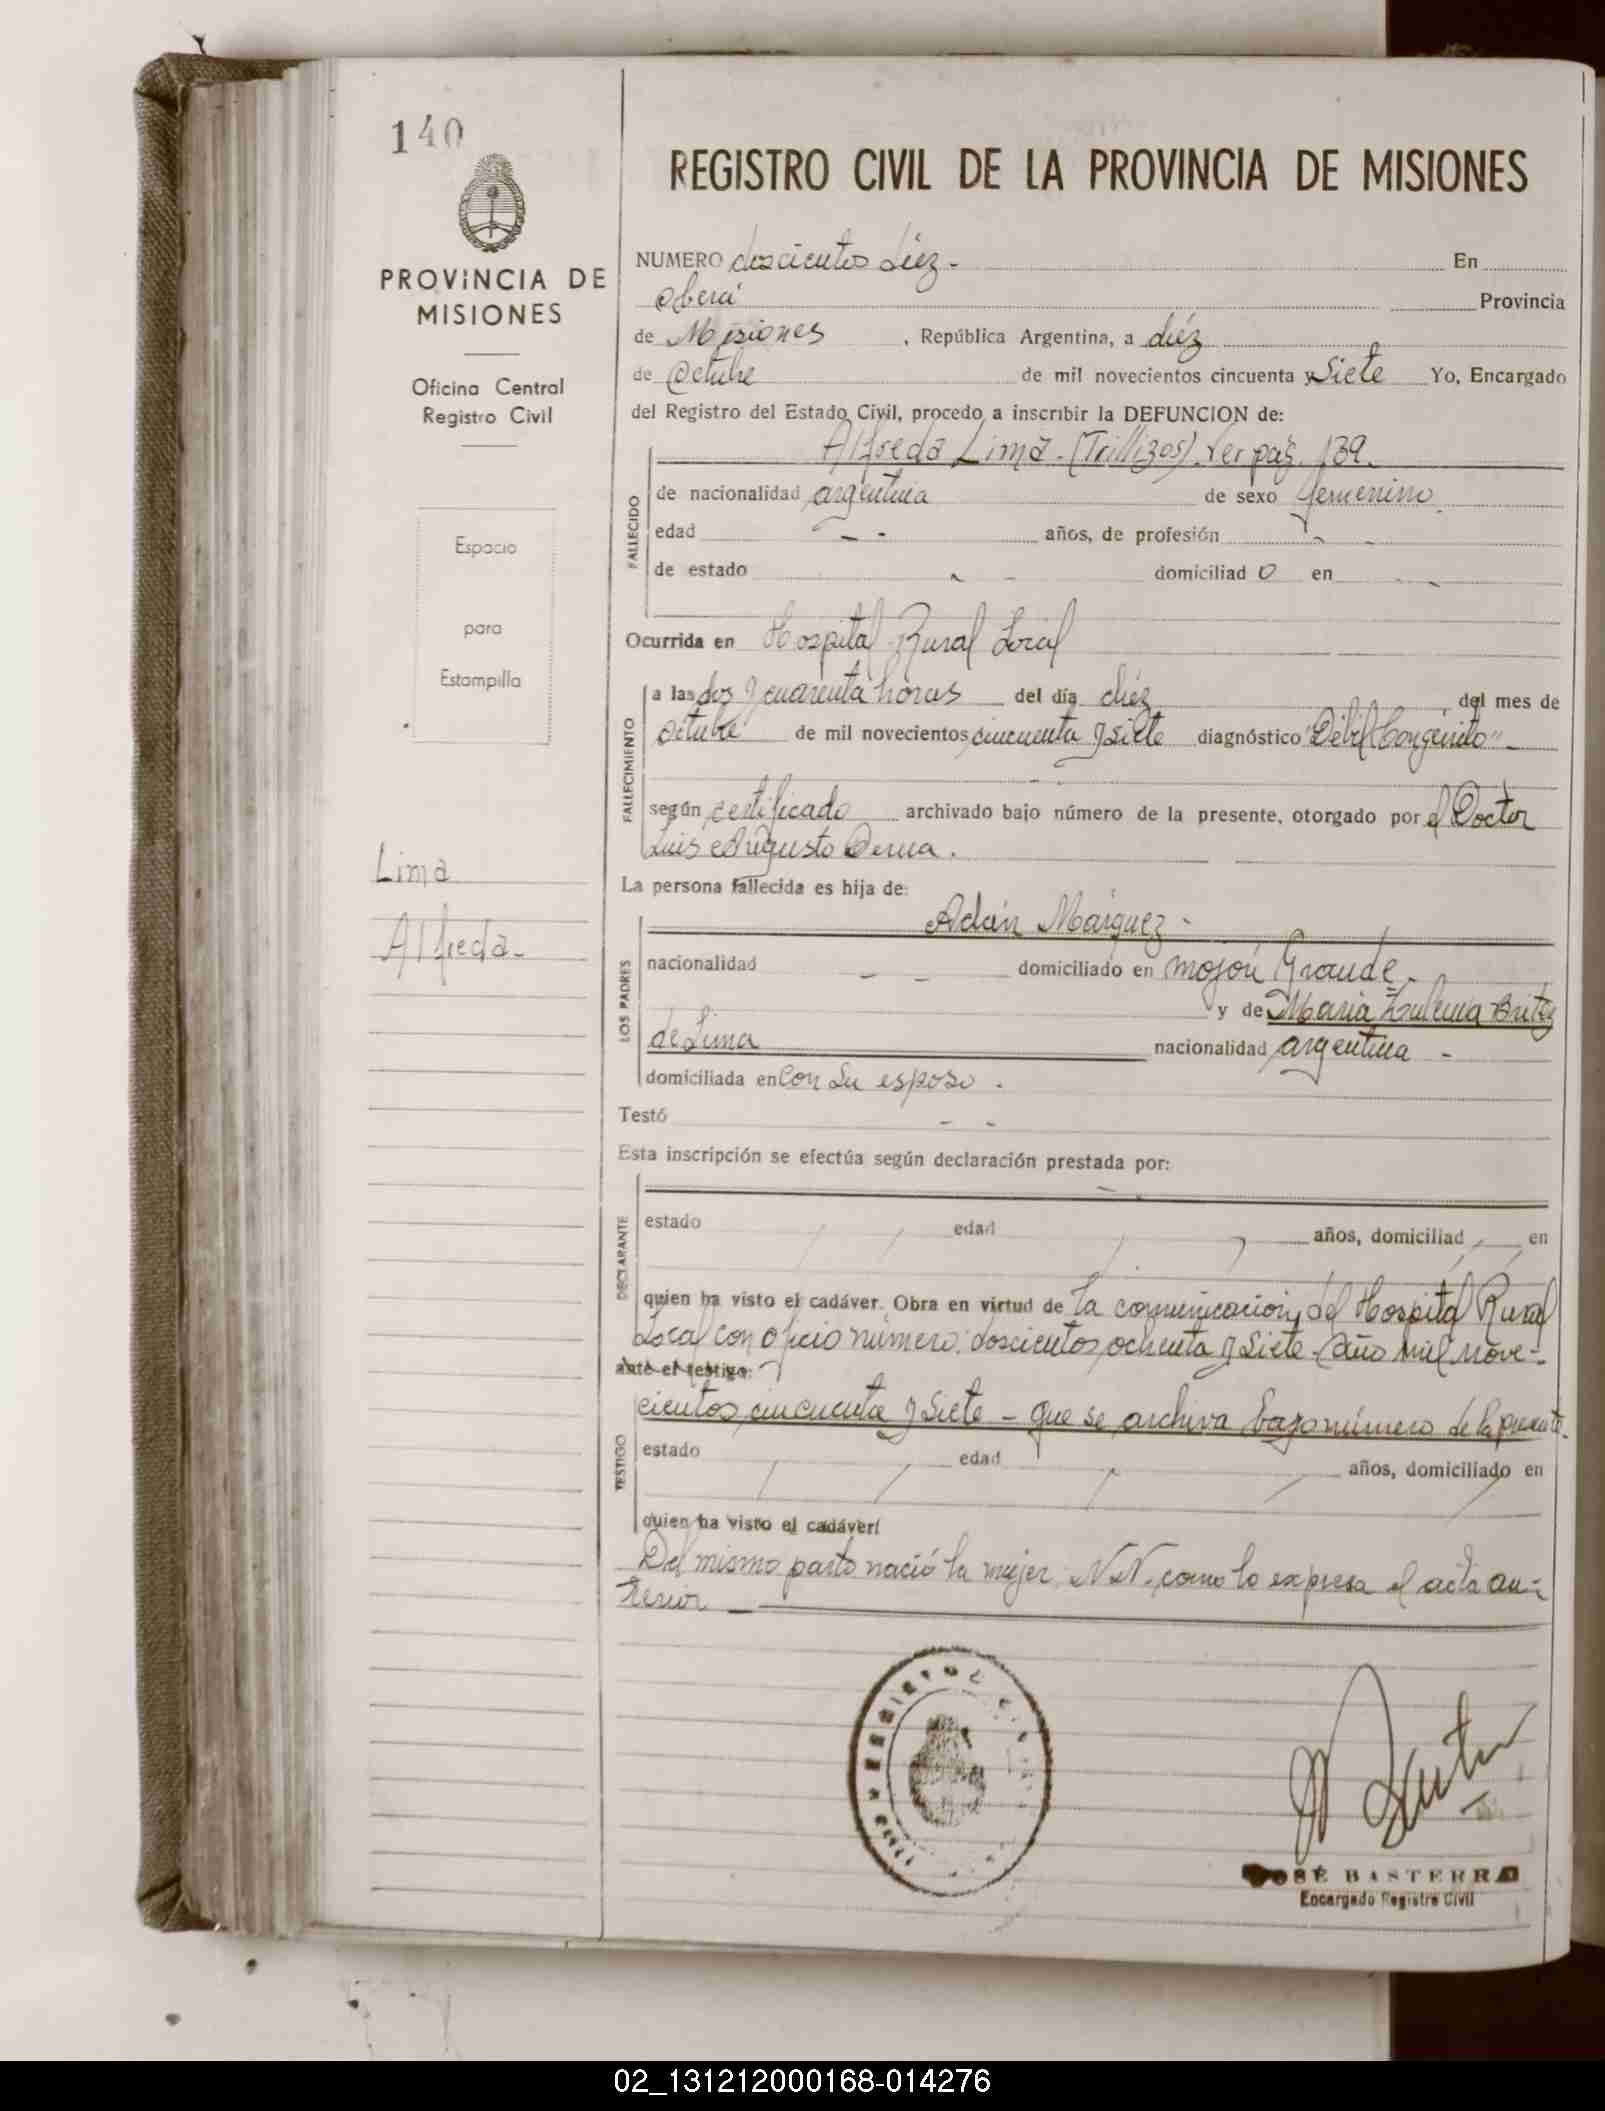 140
PROVINCIA DE
MISIONES
Oficina Central
Registro Civil
Espacio
para
Estampilla
Lima
Alfreda-
REGISTRO CIVIL DE LA PROVINCIA DE MISIONES
NUMERO doscientos diez - En
Oberá Provincia
de Misiones , República Argentina, a diéz
de Octubre de mil novecientos cincuenta y Siete Yo, Encargado
del Registro del Estado Civil, procedo a inscribir la DEFUNCION de:
Alfreda Lima - (Trillizos). Ver pág. 139.
FALLECIDO
de nacionalidad argentina de sexo femenino
edad - - años, de profesión - -
de estado - - domiciliad o en - -
Ocurrida en Hospital Rural Local
FALLECIMIENTO
a las dos y cuarenta horas del día diéz del mes de
octubre de mil novecientos cincuenta y siete diagnóstico "Débil Congénito" -
según certificado archivado bajo número de la presente, otorgado por el Doctor
Luis Augusto
La persona fallecida es hija de:
Adán Márquez -
LOS PADRES
nacionalidad - - domiciliado en Mojón Grande -
y de María Zulema Britez
de Lima nacionalidad argentina -
domiciliada en Con su esposo .
Testó - -
Esta inscripción se efectúa según declaración prestada por:
DECLARANTE
estado edad años, domiciliad en
quien ha visto el cadáver. Obra en virtud de la comunicación, del Hospital Rural
Local con oficio número: doscientos ochenta y siete - año mil nove-
ante el testigo:
cientos cincuenta y siete - que se archiva bajo número de la presente.
TESTIGO
estado edad años, domiciliado en
quien ha visto el cadáver!
Del mismo parto nació la mujer N.N. como lo expresa el acta an-
terior -
JOSÉ BASTERRA
Encargado Registro Civil
02_131212000168-014276